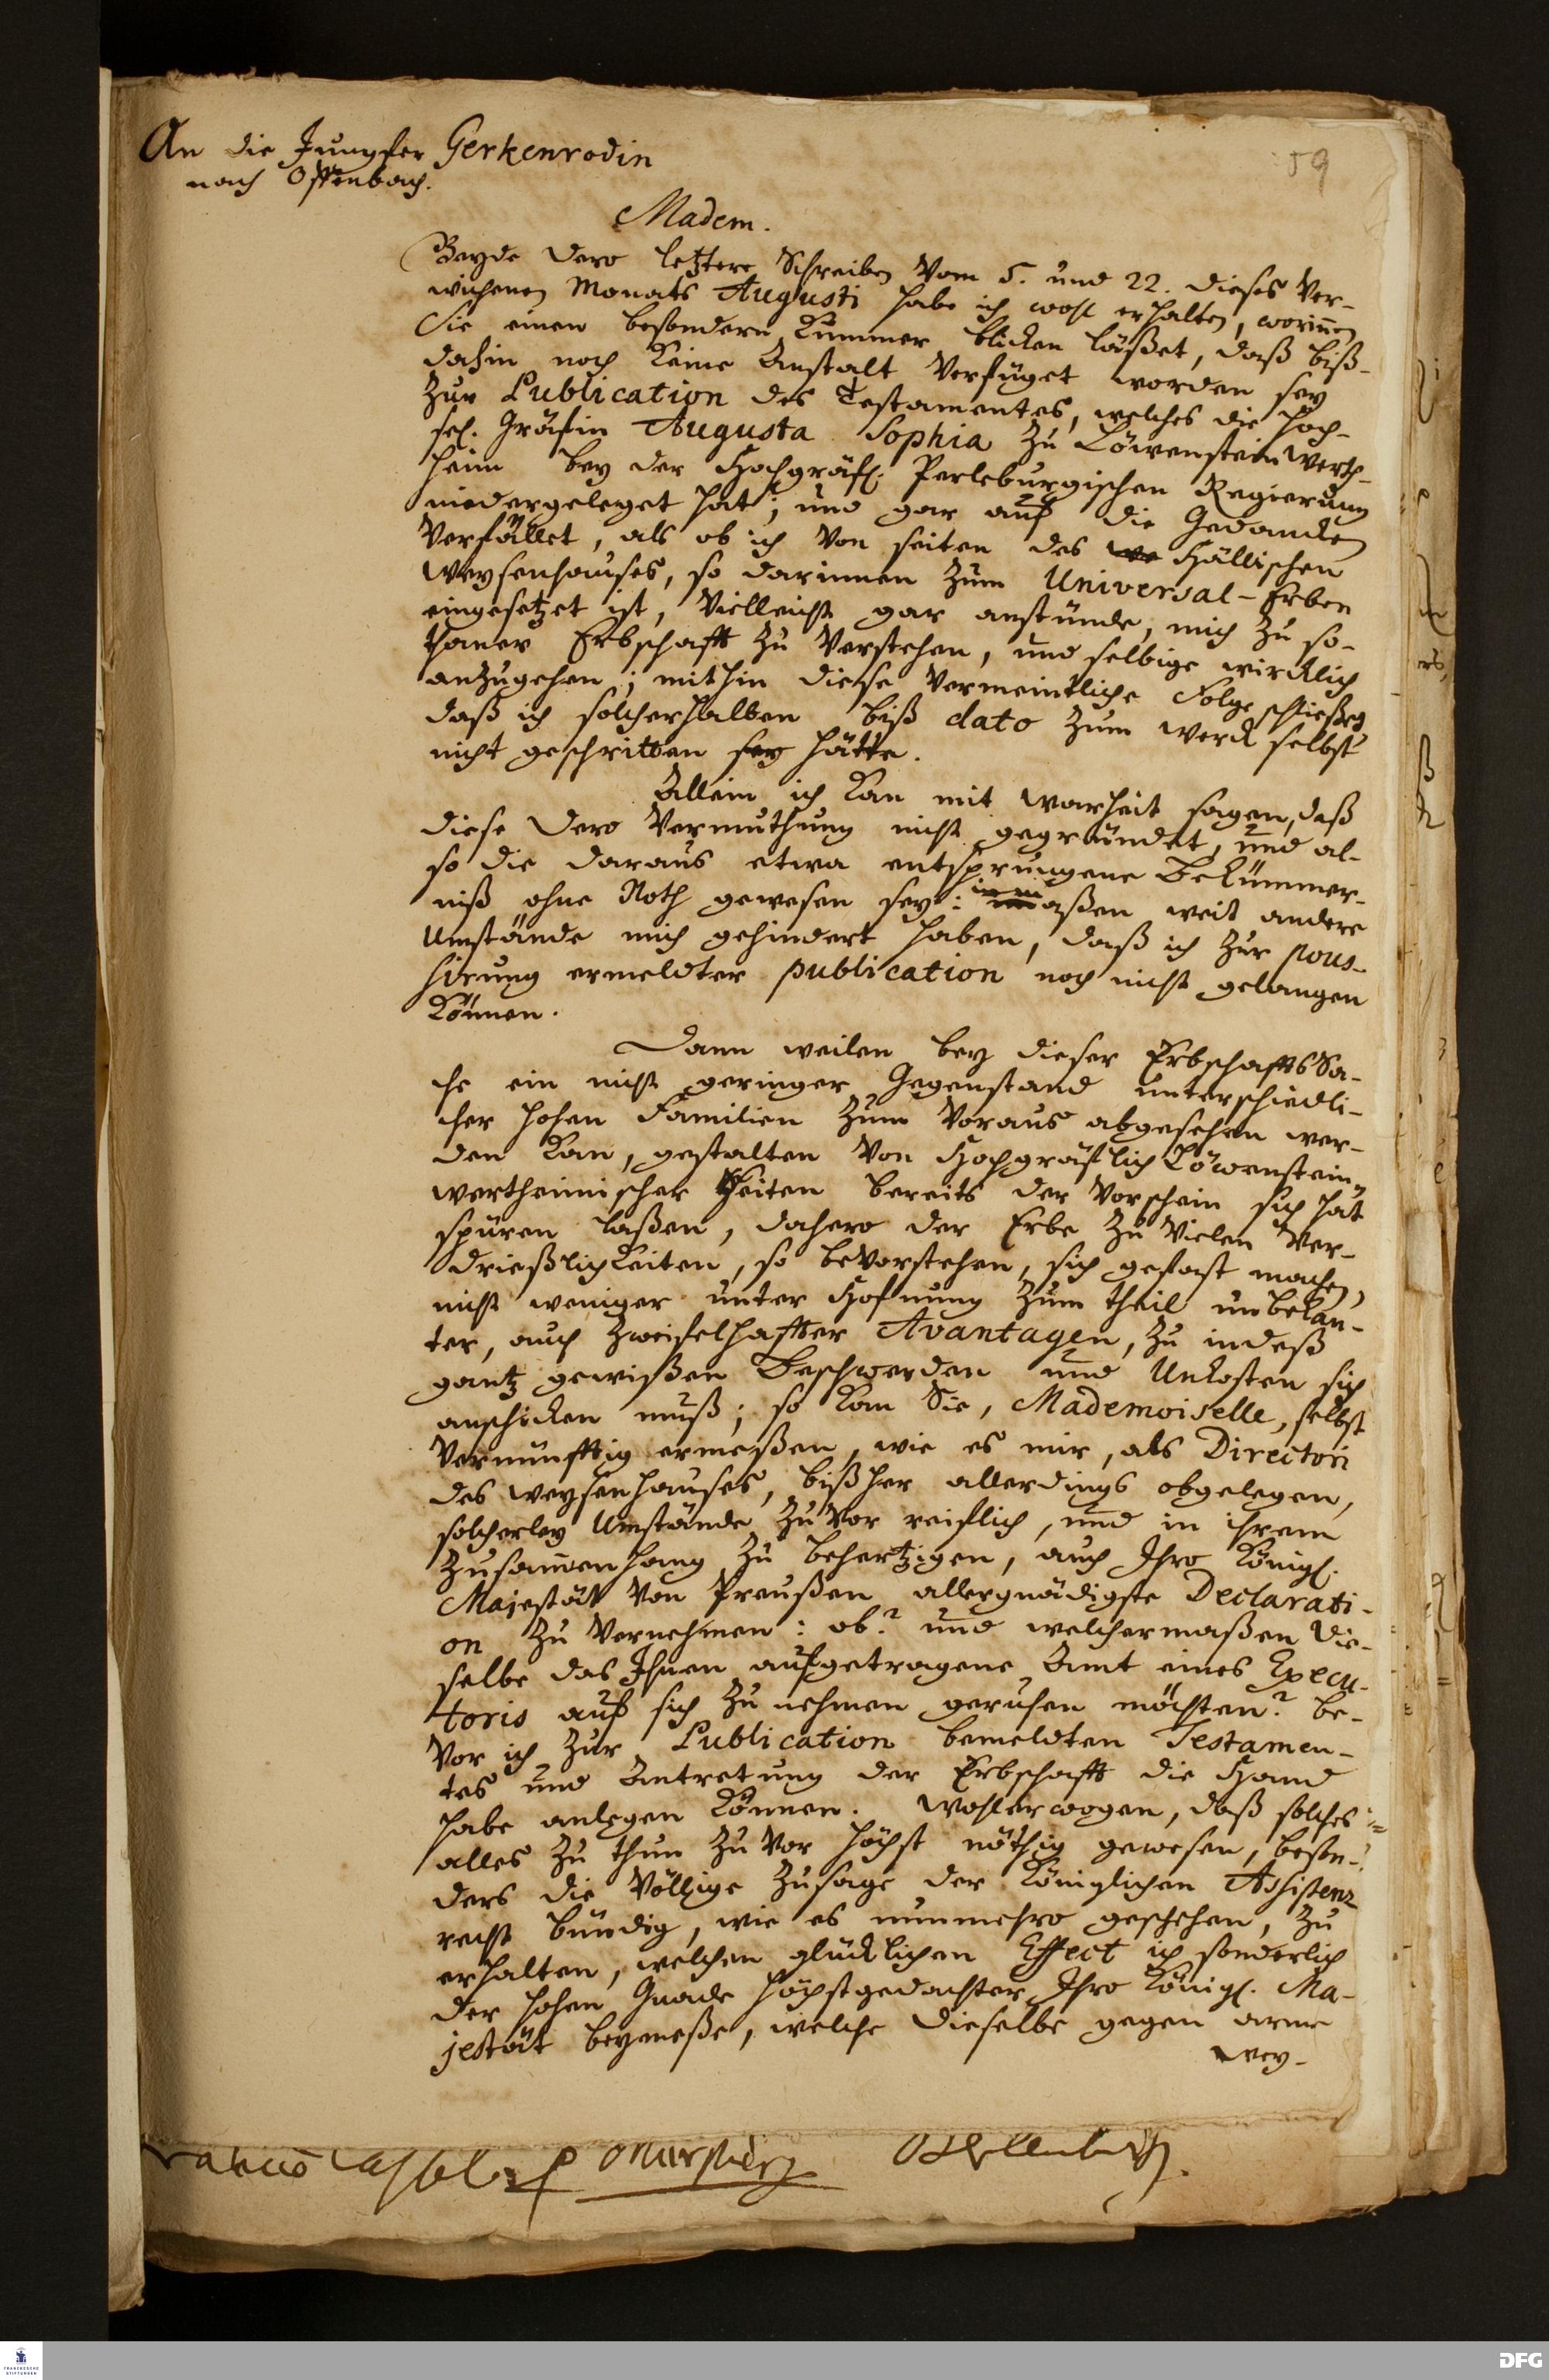 An die Jungfer Gerkenrodin
nach Offenbach.
59
Madem.
Beyde Dero letztere Schreiben vom 5. und 22. dieses ver-
wichenen Monats Augusti habe ich wohl erhalten, worinnen
Sie einen besondern Kummer blicken läßet, daß biß-
dahin noch keine Anstalt verfüget worden sey
zur Publication des Testamentes, welches die hoch-
sel. Gräfin Augusta Sophia zu Löwenstein Werth-
heim bey der Hochgräfl. Perleburgischen Regierung
niedergeleget hat; und gar auf die Gedancken
verfället, als ob ich von seiten des Hällischen
Weysenhauses, so darinnen zum Universal-Erben
eingesetzet ist, vielleicht gar anstünde, mich zu so-
thaner Erbschafft zu verstehen, und selbige wircklich
anzugehen; mithin diese vermeintliche Folge schließen
daß ich solcherhalben biß dato zum Werck selbst
nicht geschritten sey hätte.
Allein ich kan mit Warheit sagen, daß
diese Dero Vermuthung nicht gegründet, und al-
so die daraus etwa entsprungene Bekümmer-
niß ohne Noth gewesen sey: immaßen weit andere
Umstände mich gehindert haben, daß ich zur pous-
sirung ermeldter publication noch nicht gelangen
können.
Dann weilen bey dieser Erbschaffts Sa-
che ein nicht geringer Gegenstand unterschiedli-
cher hohen Familien zum Voraus abgesehen wer-
den kan, gestalten von Hochgräflich Löwenstein-
Wertheimischer Seiten bereits der Vorschein sich hat
spüren laßen, dahero der Erbe zu vielen Ver-
drießlichkeiten, so bevorstehen, sich gefast machen,
nicht weniger unter Hofnung zum theil unbekan-
ter, auch zweifelhaffter Avantagen, zu indeß
gantz gewißen Beschwerden und Unkosten sich
anschicken muß; so kan Sie, Mademoiselle, selbst
vernünfftig ermeßen, wie es mir, als Directori
des Weysenhauses, bißher allerdings obgelegen,
solcherley Umstände zuvor reiflich, und in ihrem
Zusammenhang zu behertzigen, auch Ihro Königl.
Majestät von Preußen allergnädigste Declarati-
on zu vernehmen: ob? und welchermaßen die-
selbe das Ihnen aufgetragene Amt eines Execu-
toris auf sich zu nehmen geruhen möchten? be-
vor ich zur Publication bemeldten Testamen-
tes und Antretung der Erbschafft die Hand
habe anlegen können. Wohlerwogen, daß solches
alles zu thun zuvor höchst nöthig gewesen, beson-
ders die völlige Zusage der Königlichen Assistenz
recht bündig, wie es nunmehro geschehen, zu
erhalten, welchen glücklichen Effect ich sonderlich
der hohen Gnade höchstgedachter Ihro Königl. Ma-
jestät beymeße, welche Dieselbe gegen arme
Wey-
DFG